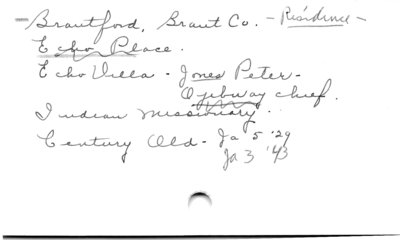 Brantford, Brant Co. - Residence -
Echo Place.
Echo Villa - Jones Peter -
Ojibway chief.
Indian missionary.
Century Old - Ja 5 '29
Ja 3 '43